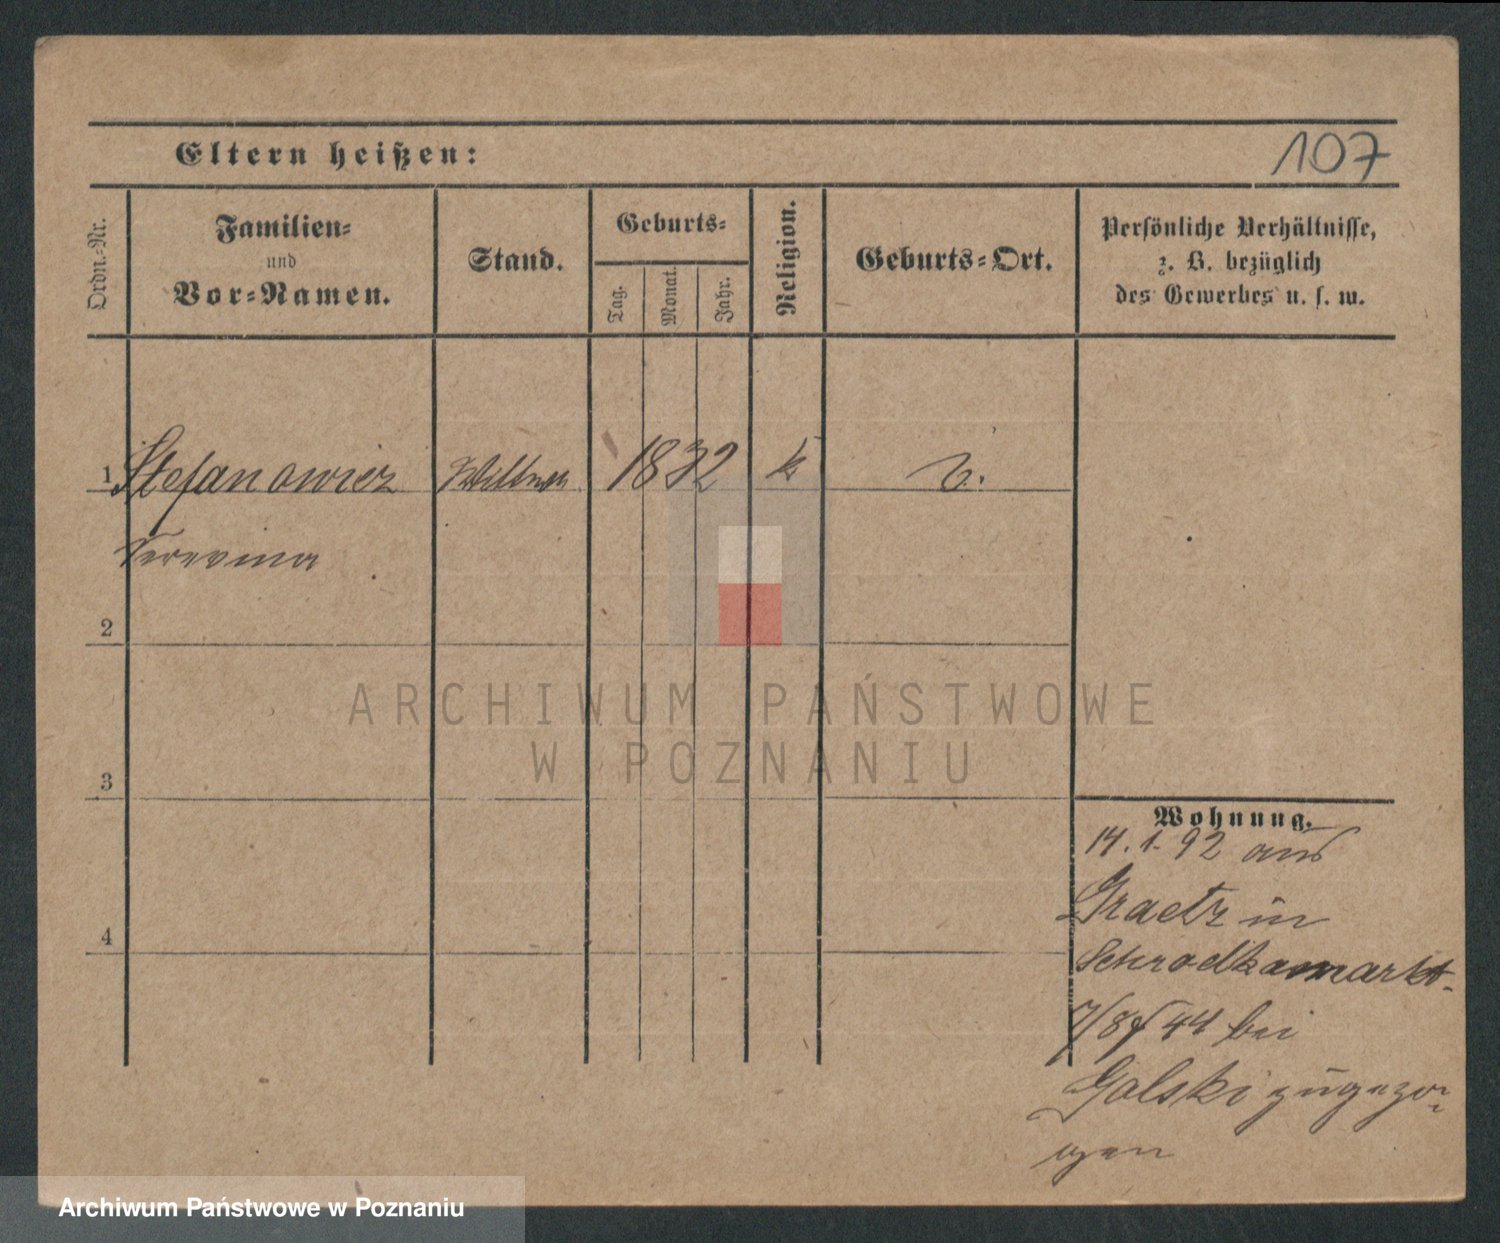 Eltern heißen:
107
Ordn.-Nr.
Familien-
und
Vor-Namen.
Stand.
Geburts-
Tag.
Monat.
Jahr.
Religion.
Geburts-Ort.
Persönliche Verhältnisse,
z. B. bezüglich
des Gewerbes u. s. w.
1 Stefanowicz 1832 k
2
3
4
Wohnung.
14.1.92 aus
Graetz in
Schrodkamarkt
7/8 bei
Golski zugezo-
gen
ARCHIWUM PAŃSTWOWE
W POZNANIU
Archiwum Państwowe w Poznaniu